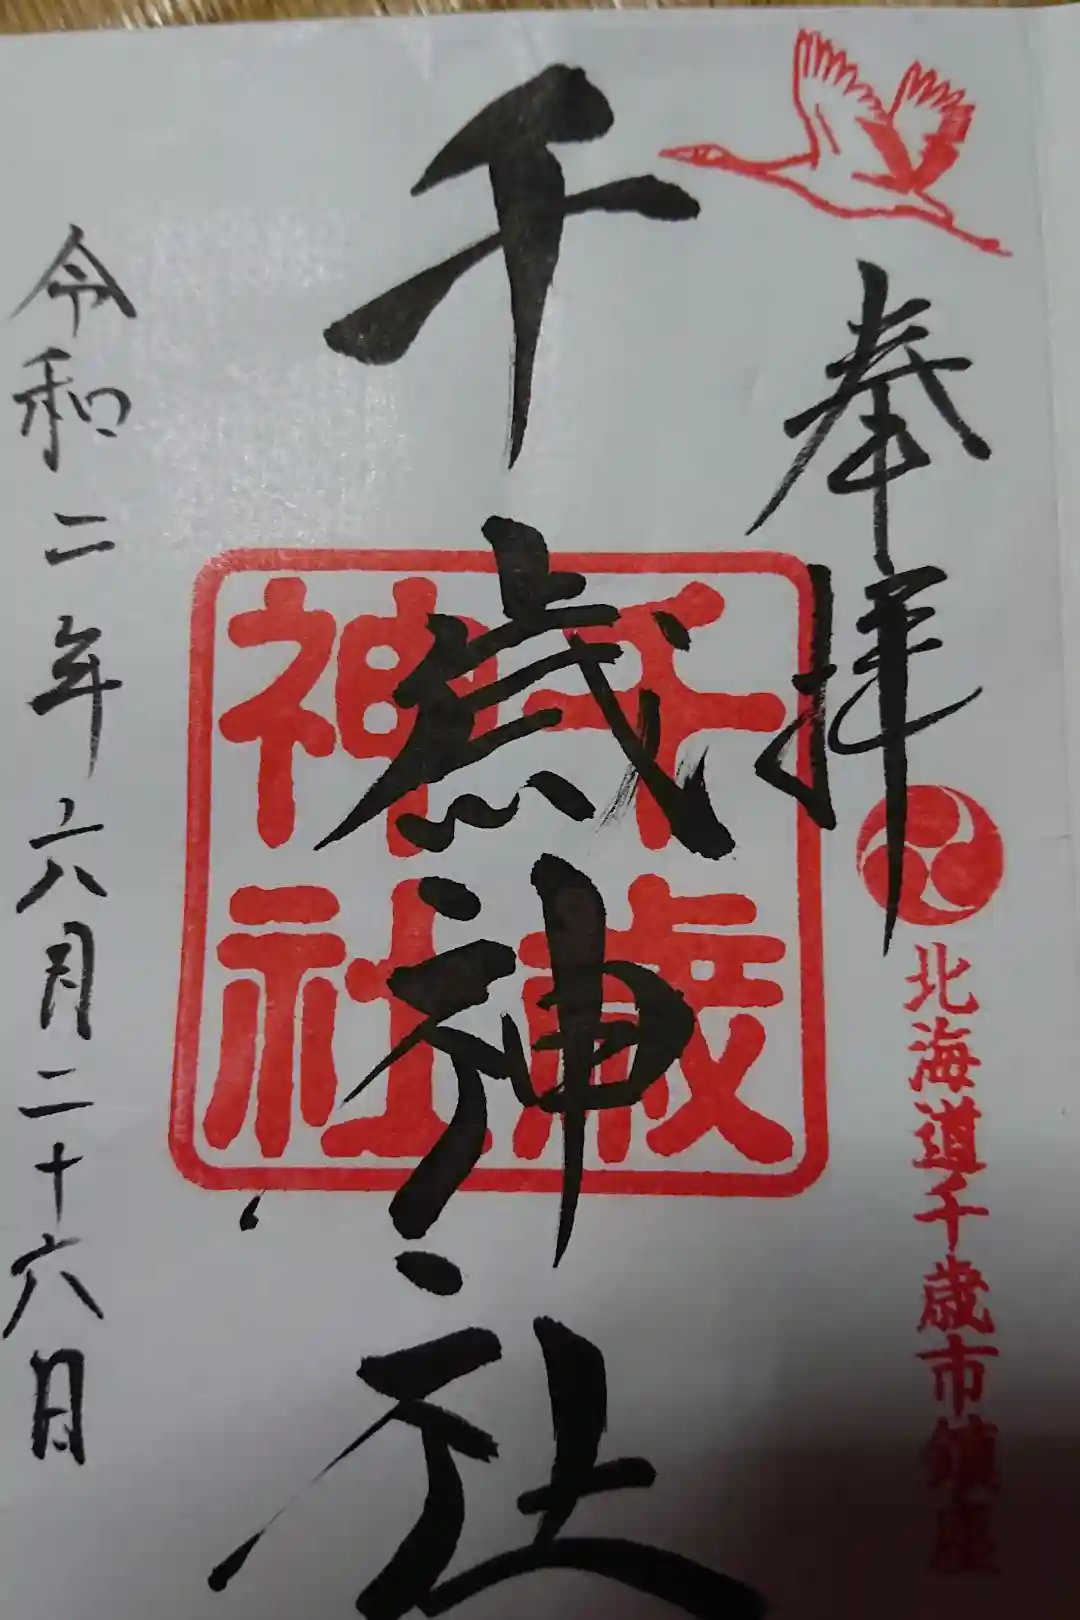 奉拝
北海道千歳市鎮座
千歳神社
千歳
神社
令和二年六月二十六日